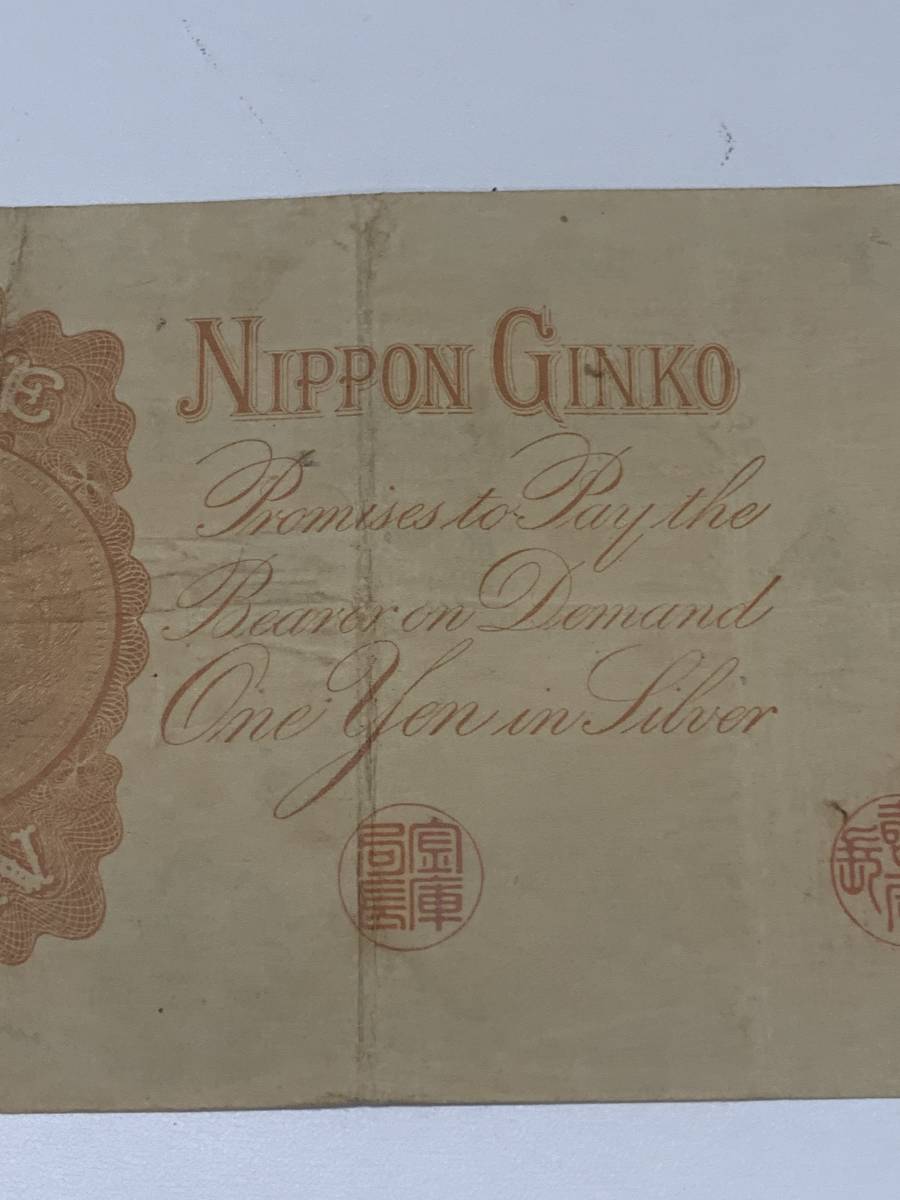 NIPPON GINKO
Promises to Pay the
Bearer on Demand
One Yen in Silver
金庫
局長